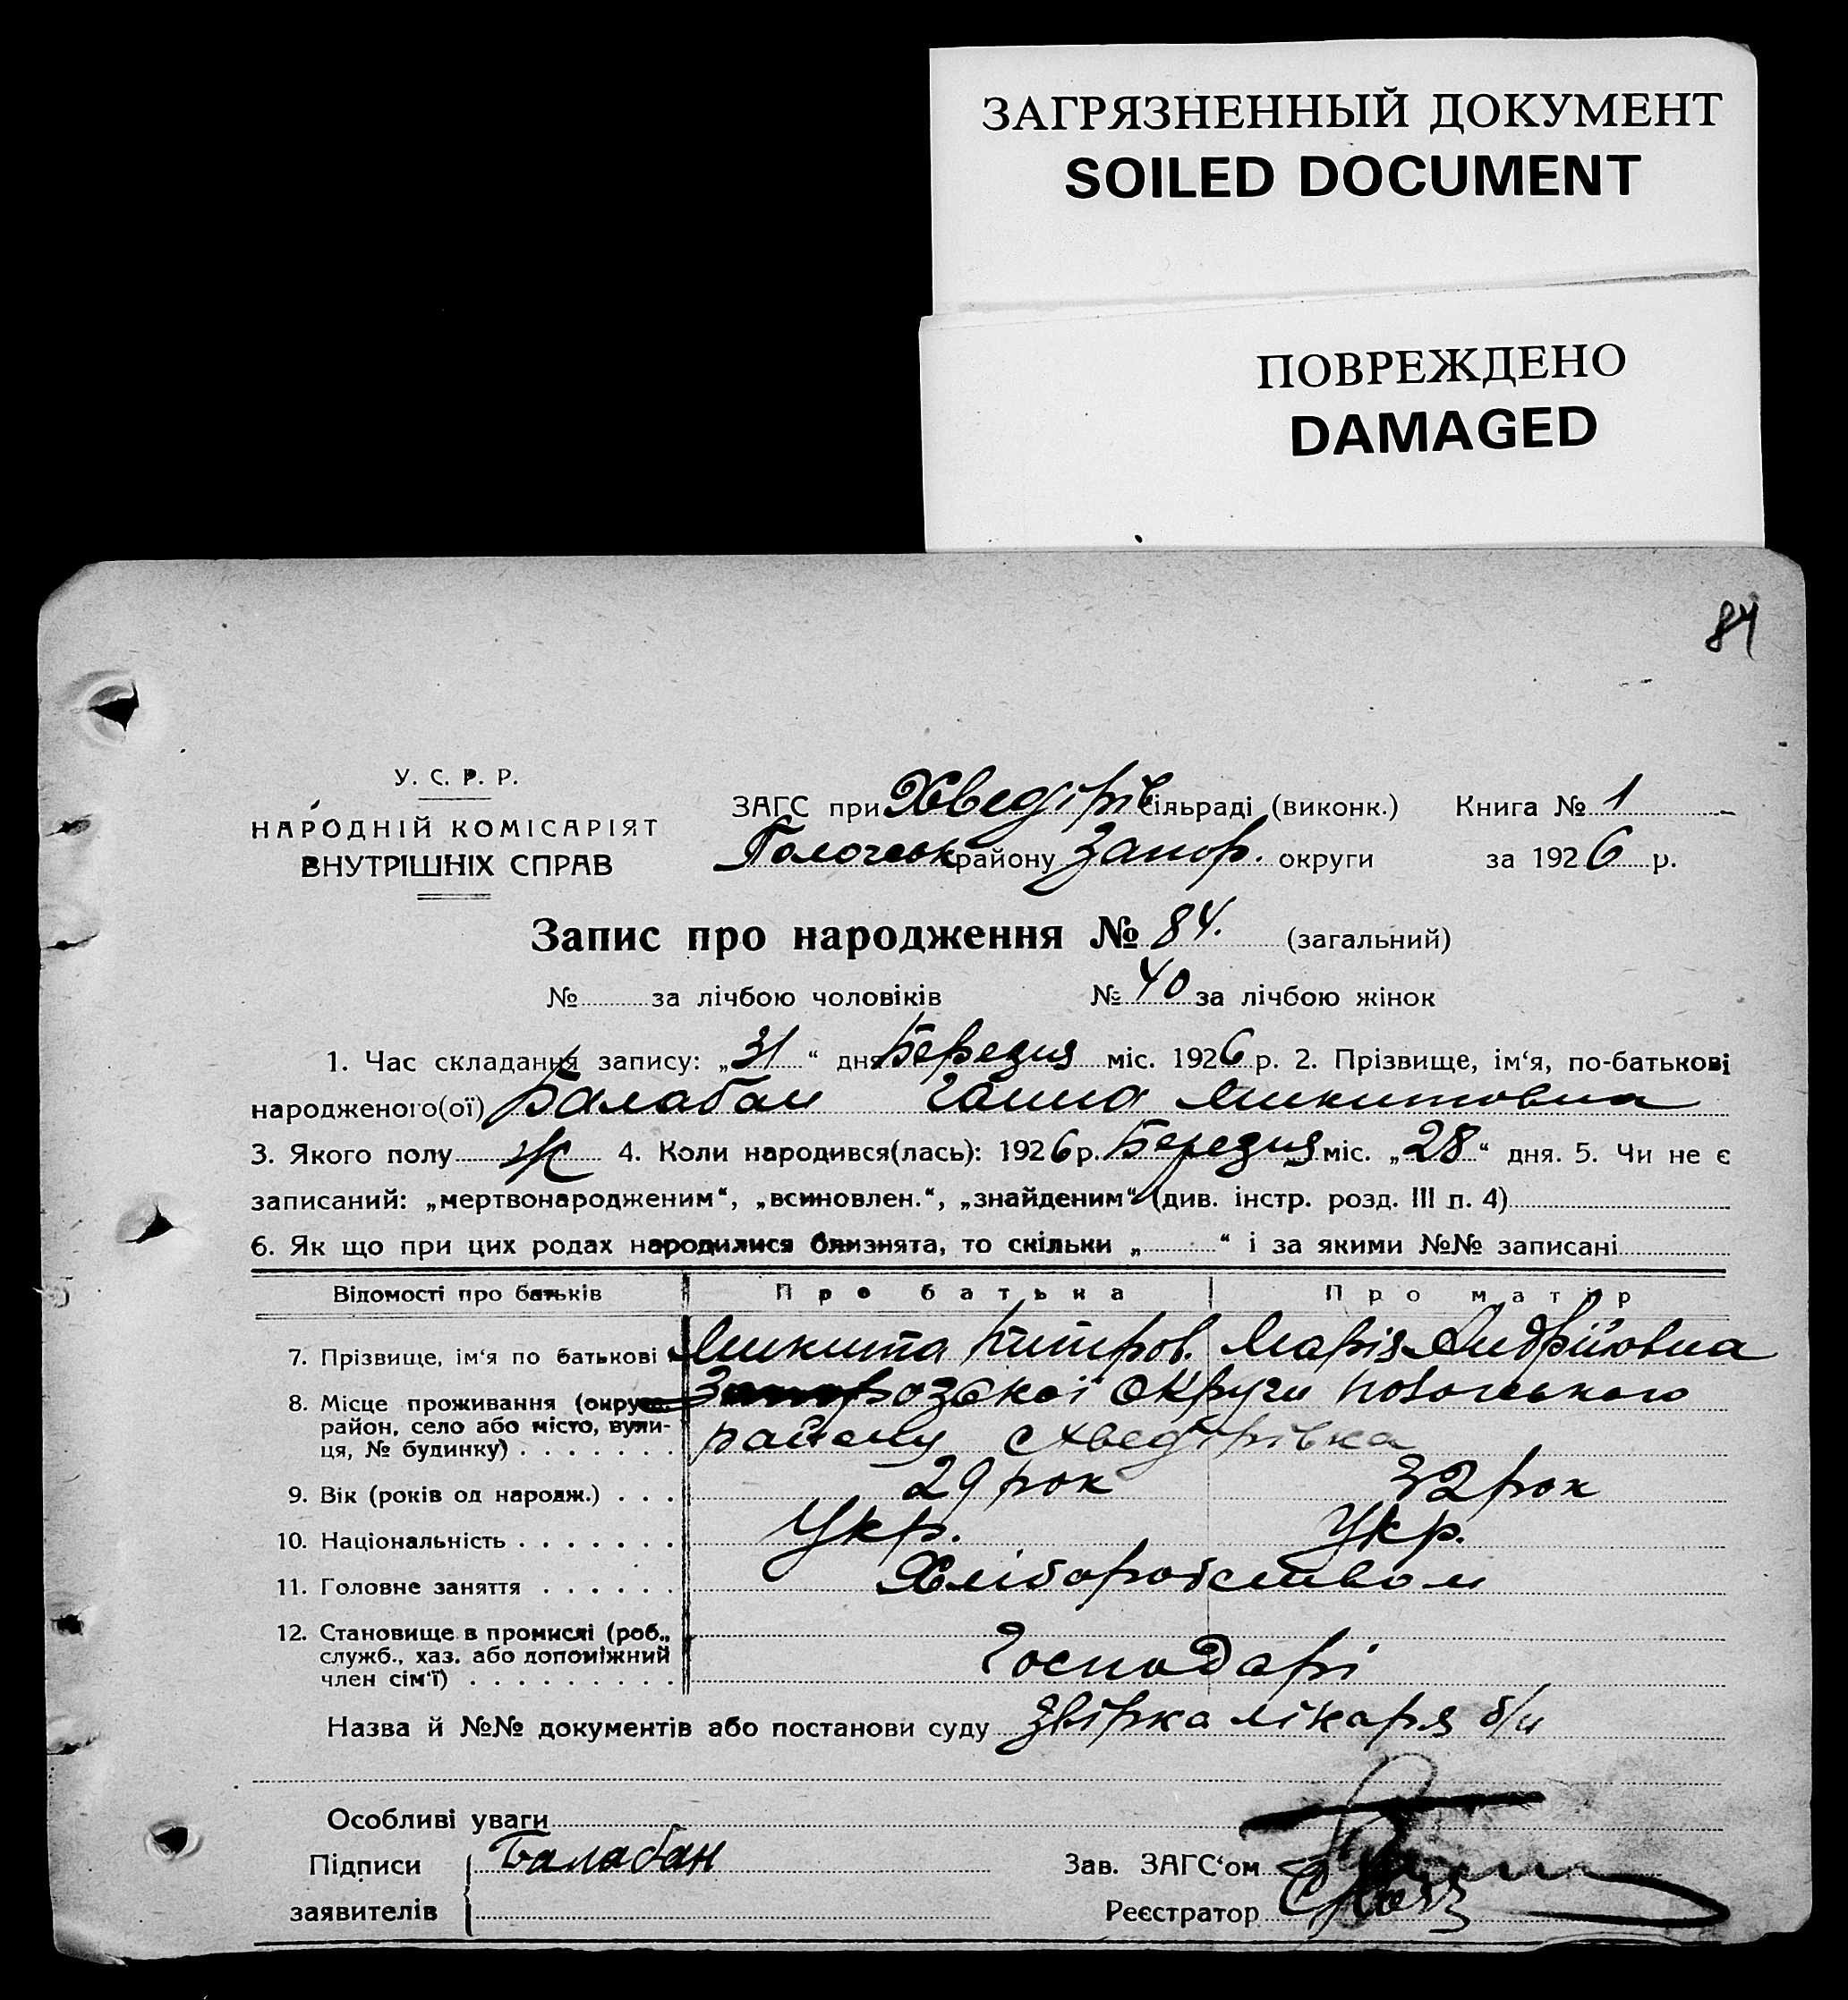 ЗАГРЯЗНЕННЫЙ ДОКУМЕНТ
SOILED DOCUMENT
ПОВРЕЖДЕНО
DAMAGED
84
У. С. Р. Р.
НАРОДНІЙ КОМІСАРІЯТ
ВНУТРІШНІХ СПРАВ
ЗАГС при Хведірів сільраді (виконк.) Книга № 1
району Запор. округи за 1926 р.
Запис про народження № 84. (загальний)
№ за лічбою чоловіків № 40 за лічбою жінок
1. Час складання запису: „31“ дня Березня міс. 1926 р. 2. Прізвище, ім‘я, по-батькові
народженого(ої) Балабан Ганна Микитовна
3. Якого полу ж 4. Коли народився(лась): 1926 р. Березня міс. „28“ дня. 5. Чи не є
записаний: „мертвонародженим“, „всиновлен.“, „знайденим“ (див. інстр. розд. III п. 4)
6. Як що при цих родах народилися близнята, то скільки „ “ і за якими №№ записані
Відомості про батьків Про батька Про матір
7. Прізвище, ім‘я по батькові Микита Питров. Марія Андрійовна
8. Місце проживання (округа, район, село або місто, вулиця, № будинку) округи
району с Хведірівка
9. Вік (років од народж.) 29 рок 32 рок
10. Національність Укр. Укр.
11. Головне заняття Хліборобством
12. Становище в промислі (роб., служб., хаз. або допоміжний член сім‘ї) Господарі
Назва й №№ документів або постанови суду звірка лікаря б/н
Особливі уваги
Підписи заявителів Балабан
Зав. ЗАГС‘ом
Реєстратор